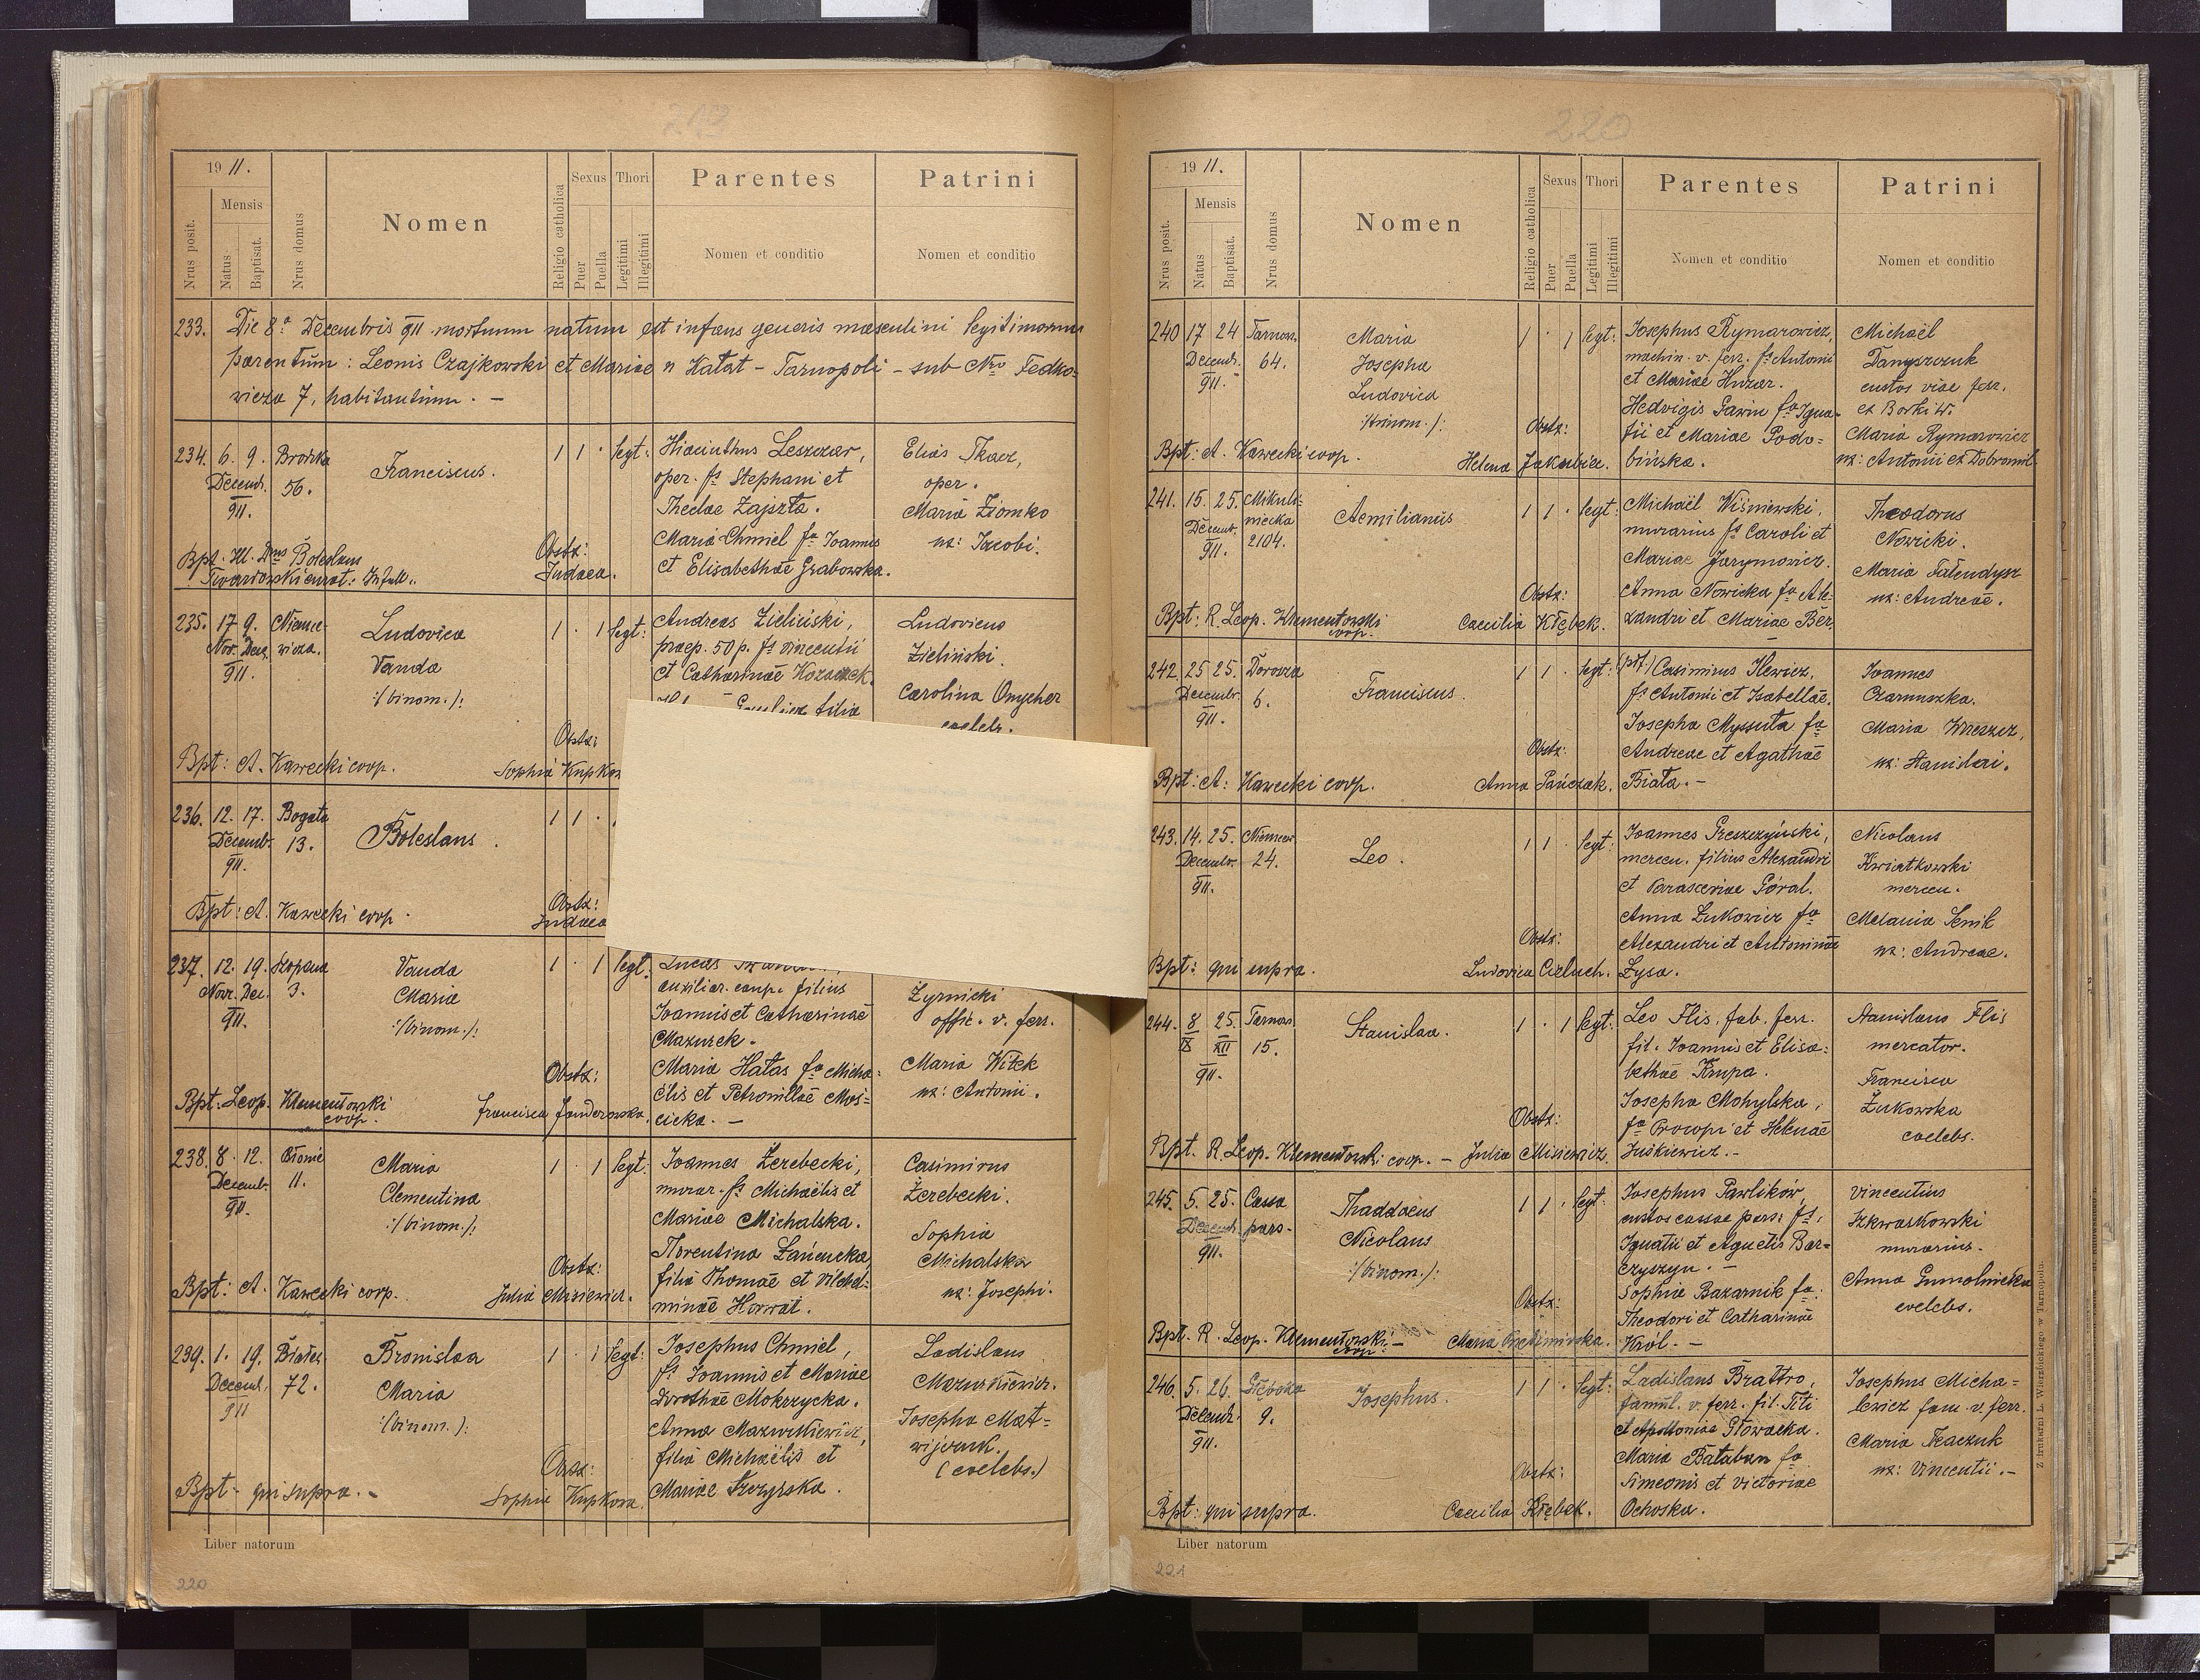 219
19 11.
Nrus posit.
Mensis
Natus
Baptisat.
Nrus domus
Nomen
Religio catholica
Sexus
Puer
Puella
Thori
Legitimi
Illegitimi
Parentes
Nomen et conditio
Patrini
Nomen et conditio
233. Die 8a Decembris 911 mortuum natum est infans generis masculini legitimorum
parentum: Leonis Czajkowski et Mariae n Hałat - Tarnopoli - sub Nro Fedko=
wicza 7, habitantium. -
234. 6. 9. Decemb. 911.
56.
Franciscus.
1 1 · legt:
Hiacinthus Leszczar,
oper. fs Stephani et
Theclae Zajszła.
Maria Chmiel fa Joannis
et Elisabethae Grabowska.
Elias Tkacz,
oper.
Maria Ziomko
ux: Jacobi.
Obstx:
Judaea.
235. 17 9. Nov. Dec. 911.
Niemce-
wicza.
Ludovica
Vanda
:/binom./:
1 · 1 legt:
Andreas Zieliński,
praep. 50 p. fs Vincentii
et Catharinae
filia
Ludovicus
Zieliński.
Carolina Onycher
caelebs.
Obstx:
Bpt: A. Kawecki coop.
Sophia
236. 12. 17. Decemb. 911.
Bogata
13.
Boleslaus.
1 1 ·
Obstx:
Judaea
Bpt: A. Kawecki coop.
237. 12. 19. Nov. Dec. 911.
3.
Vanda
Maria
:/binom./:
1 · 1 legt:
Lucas
auxiliar. filius
Joannis et Catharinae
Mazurek.
Maria Hałas fa Micha=
ëlis et Petronillae Moś=
cicka. -
Żyrnicki
offic. v. ferr.
Maria Witek
ux: Antonii.
Obstx:
Bpt: Leop. Klementowski
coop.
Francisca Janderowska.
238. 8. 12. Decemb. 911.
Błonie
11.
Maria
Clementina
:/binom./:
1 · 1 legt:
Joannes Żerebecki,
murar. fs Michaëlis et
Mariae Michalska.
Florentina Łańcucka,
filia Thomae et Vilhel=
minae Horwat.
Casimirus
Żerebecki.
Sophia
Michalska
ux: Josephi.
Obstx:
Bpt: A. Kawecki coop.
Julia Misiewicz.
239. 1. 19. Decemb. 911
72.
Bronislaa
Maria
:/binom./:
1 · 1 legt:
Josephus Chmiel,
fs Joannis et Mariae
Dorothae Mokrzycka.
Anna Mazurkiewicz,
filia Michaëlis et
Mariae
Ladislaus
Mazurkiewicz.
Josepha Mat=
wijczuk.
(caelebs.)
Obstx:
Bpt: qui supra. -
Sophia Kupkowa.
Liber natorum
220
220
19 11.
Nrus posit.
Mensis
Natus
Baptisat.
Nrus domus
Nomen
Religio catholica
Sexus
Puer
Puella
Thori
Legitimi
Illegitimi
Parentes
Nomen et conditio
Patrini
Nomen et conditio
240 17 24 Decemb. 911.
64.
Maria
Josepha
Ludovica
:/trinom./:
1 · 1 legt:
Josephus Rymarowicz,
machin. v. ferr. fs Antonii
et Mariae Huzar.
Hedvigis Gawin fa Igna-
tii et Mariae Podo=
bińska.
Michaël
Danyszczuk
custos viae ferr.
ex Borki W.
Maria Rymarowicz
ux: Antonii ex Dobromil
Obstx:
Bpt: A. Kawecki coop.
Helena
241. 15. 25. Decemb. 911.
Mikuli=
niecka
2104.
Aemilianus
1 1 · legt:
Michaël Wiśniewski,
murarius fs Caroli et
Mariae Jarymowicz.
Anna Nowicka fa Ale=
xandri et Mariae Ber.
Theodorus
Nowicki.
Maria Fałendysz
ux: Andreae.
Obstx:
Bpt: R. Leop. Klementowski
coop.
Caecilia Kłębek.
242. 25 25. Decembr. 911.
6.
Franciscus.
1 1 · legt:
Casimirus Ilewicz,
fs Antonii et Isabellae.
Josepha Myssuta fa
Andreae et Agathae
Biała. -
Joannes
Czarnuszka.
Maria
ux: Stanislai.
Obstx:
Bpt: A: Kawecki coop.
Anna Pańczak.
243. 14. 25. Decembr. 911.
24.
Leo.
1 1 · legt:
Joannes Preszczyński,
mercen. filius Alexandri
et Parasceviae Góral.
Anna Łukowicz fa
Alexandri et Antoninae
Łysa.
Nicolaus
Kwiatkowski
mercen.
Melania Senik
ux: Andreae.
Obstx:
Bpt: qui supra.
Ludovica Cieluch.
244. 8/IX 25./XII 911.
15.
Stanislaa.
1 · 1 legt:
Leo Flis, fab. ferr.
fil. Joannis et Elisa=
bethae Krupa.
Josepha Mohylska,
fa Procopi et Helenae
Juśkiewicz. -
Stanislaus Flis
mercator.
Francisca
Żukowska
caelebs.
Obstx:
Bpt. R. Leop. Klementowski coop. - Julia Misiewicz.
245. 5. 25. Decemb. 911.
Cassa
pars-
Thaddaeus
Nicolaus
:/binom./:
1 1 · legt:
Josephus Pawlików,
custos cassae pars: fs.
Ignatii et Agnetis Bar=
czyszyn. -
Sophia Bazarnik fa:
Theodori et Catharinae
Król. -
Vincentius
Szkwarkowski
murarius.
Anna
caelebs.
Obstx:
Bpt. R. Leop. Klementowski -
coop.
Maria
246. 5. 26. Decemb. 911.
Głęboka
9.
Josephus.
1 1 · legt:
Ladislaus Brattro,
famul. v. ferr. fil. Titi
et Apolloniae Głowacka.
Maria Bałaban fa
Simeonis et Victoriae
Ochoska.
Josephus Micha=
lewicz fam. v. ferr.
Maria Tkaczuk
ux: Vincentii. -
Obstx:
Bpt: qui supra.
Caecilia Kłębek.
Liber natorum
221
Z drukarni L. Wierzbickiego w Tarnopolu.